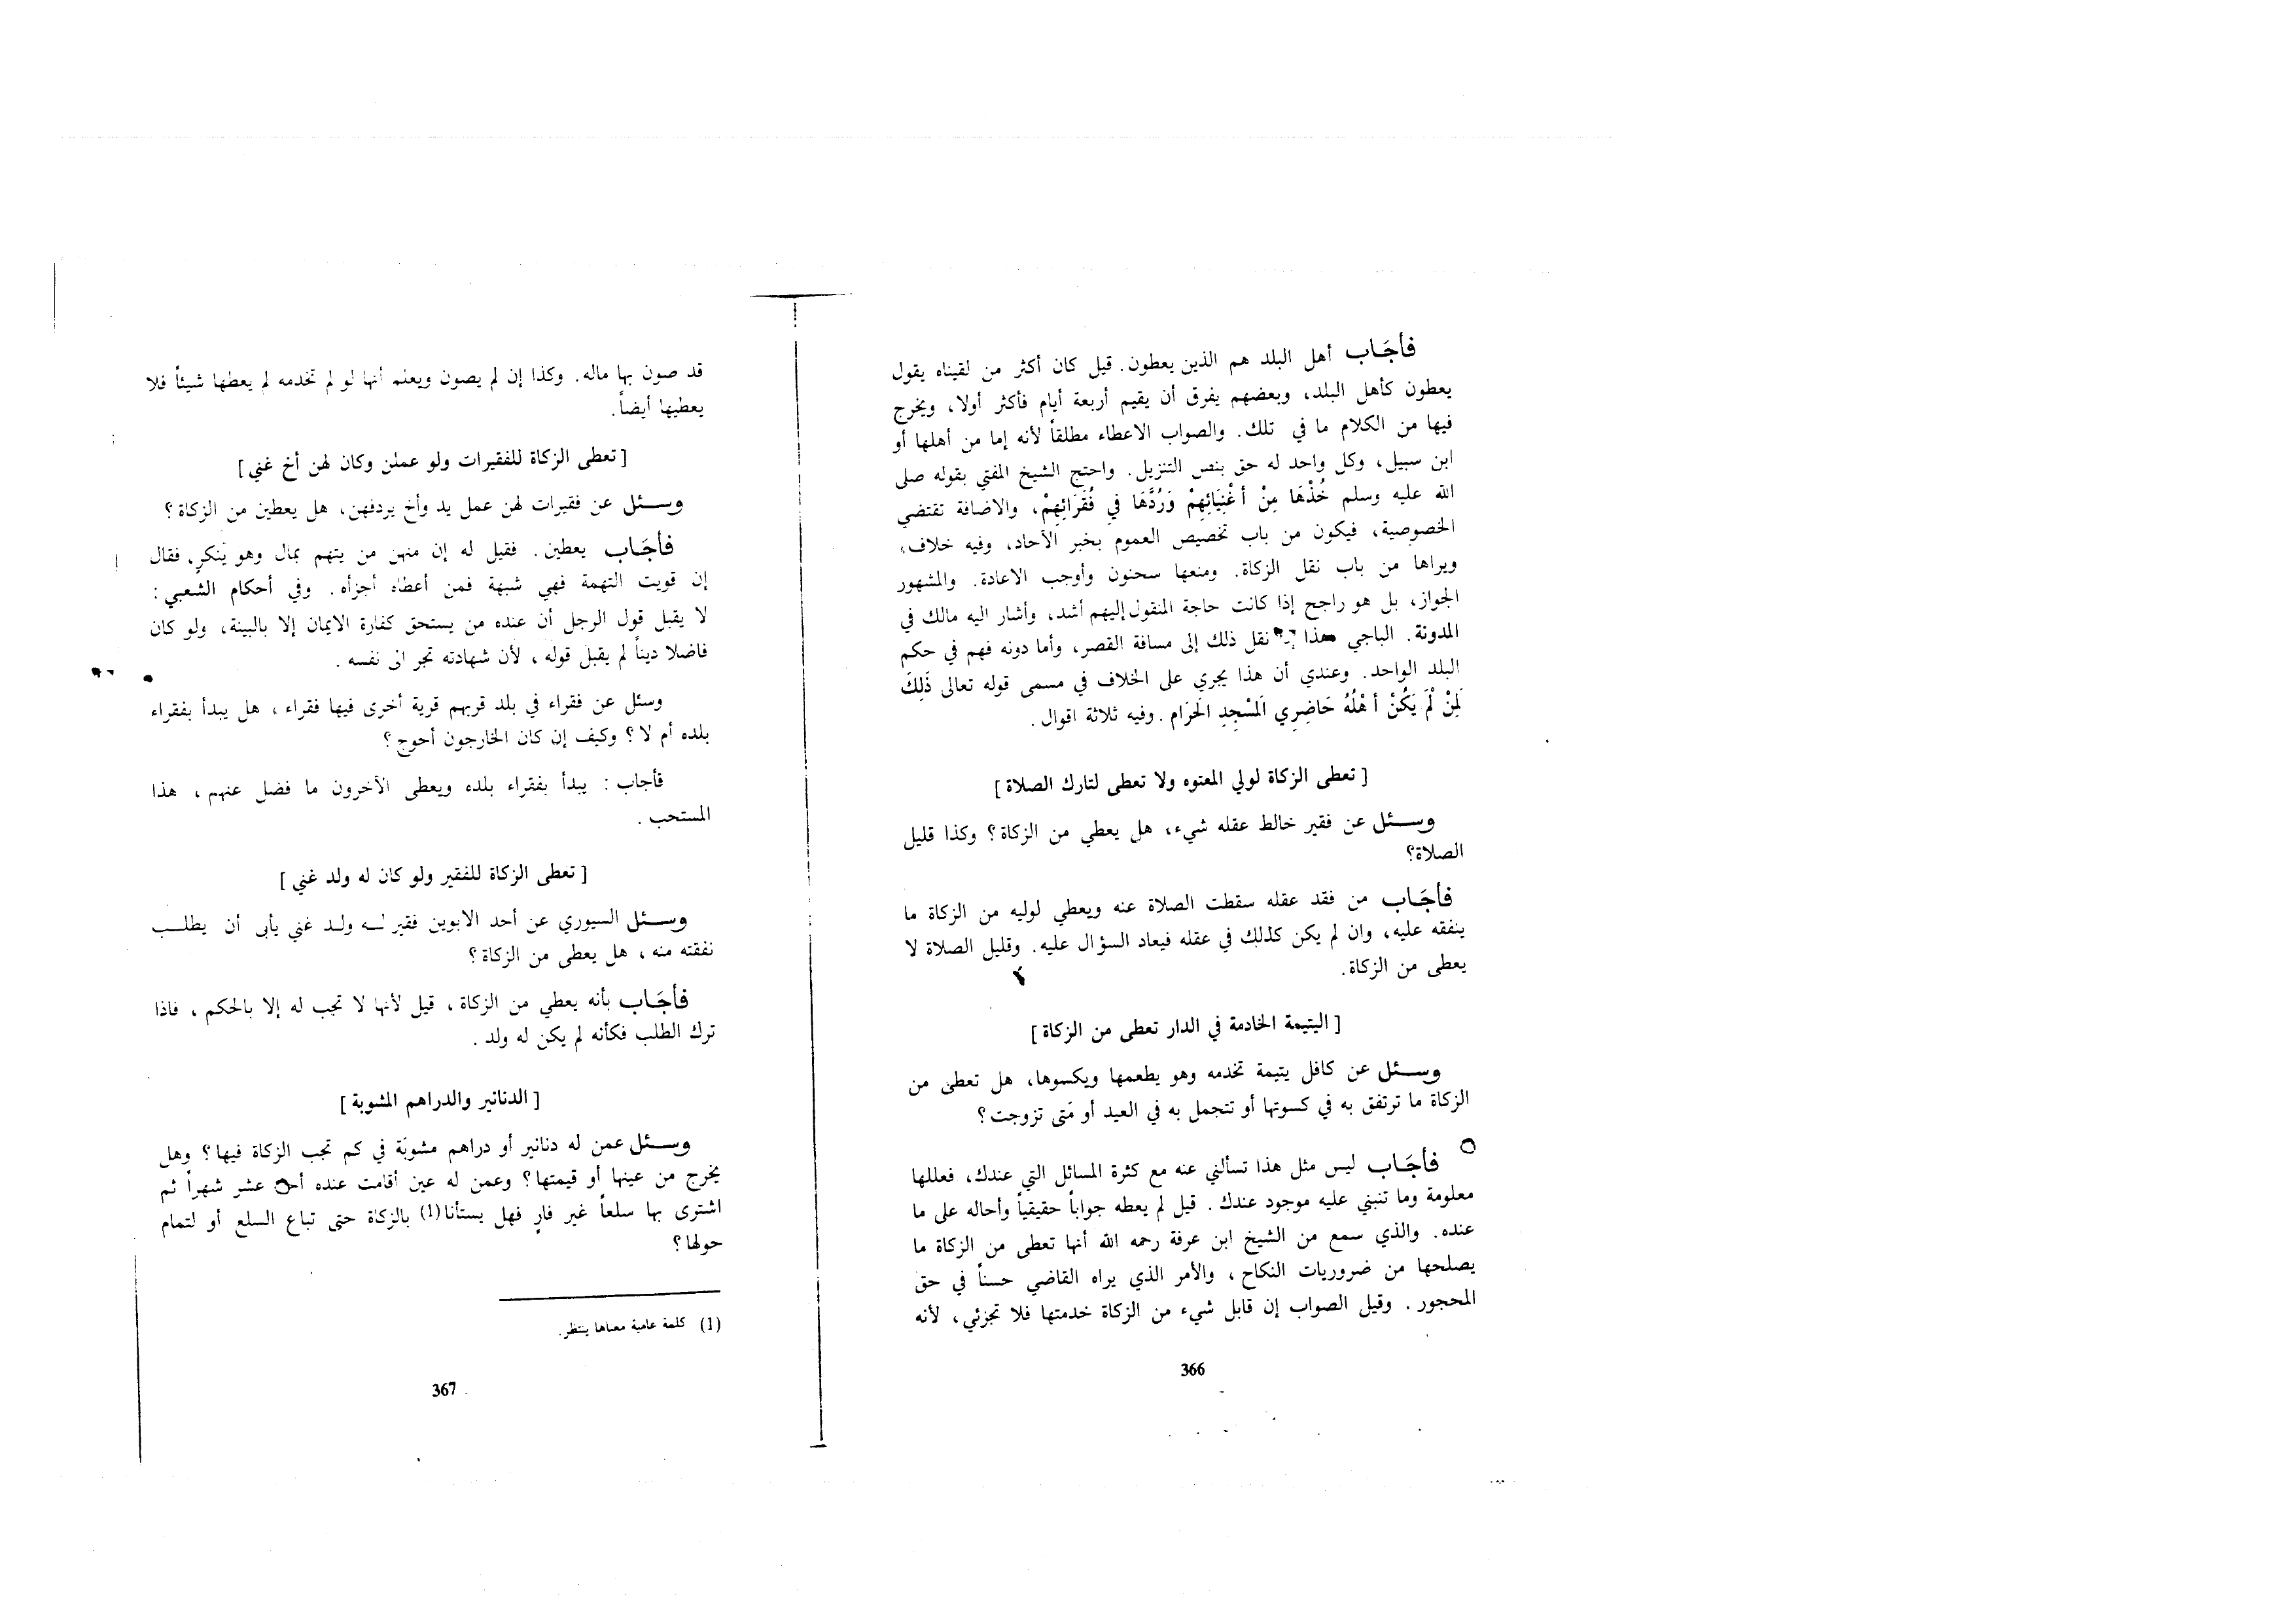 فأجَاب أهل البلد هم الذين يعطون. قيل كان أكثر من لقيناه يقول
يعطون كأهل البلد، وبعضهم يفرق أن يقيم أربعة أيام فأكثر أولا، ويخرج
فيها من الكلام ما في تلك. والصواب الاعطاء مطلقاً لأنه إما من أهلها أو
ابن سبيل، وكل واحد له حق بنص التنزيل. واحتج الشيخ المفتي بقوله صلى
الله عليه وسلم خُذْهَا مِنْ أغْنِيَائِهِمْ وَرُدَّهَا فيِ فُقَرَائِهِمْ، والاضافة تقتضي
الخصوصية، فيكون من باب تخصيص العموم بخبر الآحاد، وفيه خلاف،
ويراها من باب نقل الزكاة. ومنعها سحنون وأوجب الاعادة. والمشهور
الجواز، بل هو راجح إذا كانت حاجة المنقول إليهم أشد، وأشار اليه مالك في
المدونة. الباجي هذا نقل ذلك إلى مسافة القصر، وأما دونه فهم في حكم
البلد الواحد. وعندي أن هذا يجري على الخلاف في مسمى قوله تعالى ذَلِكَ
لَمِنْ لْمَ يَكُنْ أهْلُهُ حَاضِرِي اَلمَسْجِدِ الَحَرَام. وفيه ثلاثة اقوال.
[ تعطى الزكاة لولي المعتوه ولا تعطى لتارك الصلاة ]
وسـئل عن فقير خالط عقله شيء، هل يعطي من الزكاة؟ وكذا قليل
الصلاة؟
فأجَاب من فقد عقله سقطت الصلاة عنه ويعطي لوليه من الزكاة ما
ينفقه عليه، وان لم يكن كذلك في عقله فيعاد السؤال عليه. وقليل الصلاة لا
يعطى من الزكاة.
[ اليتيمة الخادمة في الدار تعطى من الزكاة ]
وسـئل عن كافل يتيمة تخدمه وهو يطعمها ويكسوها، هل تعطى من
الزكاة ما ترتفق به في كسوتها أو تتجمل به في العيد أو مَتى تزوجت؟
فأجَاب ليس مثل هذا تسألني عنه مع كثرة المسائل التي عندك، فعللها
معلومة وما تنبني عليه موجود عندك. قيل لم يعطه جواباً حقيقياً وأحاله على ما
عنده. والذي سمع من الشيخ ابن عرفة رحمه الله أنها تعطى من الزكاة ما
يصلحها من ضروريات النكاح، والأمر الذي يراه القاضي حسناً في حق
المحجور. وقيل الصواب إن قابل شيء من الزكاة خدمتها فلا تجزئي، لأنه
366
قد صون بها ماله. وكذا إن لم يصون ويعلم أنها لو لم تخدمه لم يعطها شيئاً فلا
يعطيها أيضاً.
[ تعطى الزكاة للفقيرات ولو عملن وكان لهن أخ غني ]
وسـئل عن فقيرات لهن عمل يد وأخ يردفهن، هل يعطين من الزكاة؟
فأجَاب يعطين. فقيل له إن منهن من يتهم بمال وهو يَنكر. فقال
إن قويت التهمة فهي شبهة فمن أعطاه أجزأه. وفي أحكام الشعبي:
لا يقبل قول الرجل أن عنده من يستحق كفارة الايمان إلا بالبينة، ولو كان
فاضلا ديناً لم يقبل قوله، لأن شهادته تجر الى نفسه.
وسئل عن فقراء في بلد قربهم قرية أخرى فيها فقراء، هل يبدأ بفقراء
بلده أم لا؟ وكيف إن كان الخارجون أحوج؟
فأجاب: يبدأ بفقراء بلده ويعطى الآخرون ما فضل عنهم، هذا
المستحب.
[ تعطى الزكاة للفقير ولو كان له ولد غني ]
وسـئل السيوري عن أحد الابوين فقير لـه ولـد غني يأبى أن يطلـب
نفقته منه، هل يعطى من الزكاة؟
فأجَاب بأنه يعطي من الزكاة، قيل لأنها لا تجب له إلا بالحكم، فاذا
ترك الطلب فكأنه لم يكن له ولد.
[ الدنانير والدراهم المشوبة ]
وسـئل عمن له دنانير أو دراهم مشوبَة في كم تجب الزكاة فيها؟ وهل
يخرج من عينها أو قيمتها؟ وعمن له عين أقامت عنده عشر شهراً ثم
اشترى بها سلعاً غير فارٍ فهل يستأنا(1) بالزكاة حتى تباع السلع أو لتمام
حولها؟
(1) كلمة عامية معناها ينتظر.
367